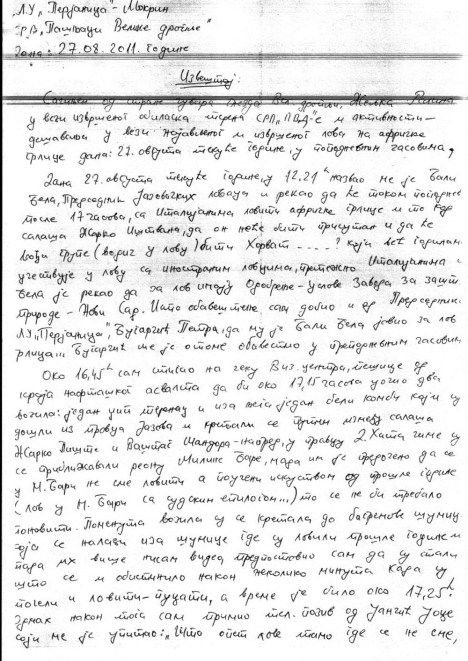 Л.У. „Перјаница"- Мокрин
СРП „Пашњаци Велике дропље"
Дана: 27.08.2011. године
Извештај:
Сачињен од стране чувара
у вези извршеног обиласка терена СРП„ПВД"-е и активности-
дешавања у вези најављеног и извршеног лова на афричке
грлице дана: 27. августа текуће године, у поподневним часовима,
Дана 27. августа текуће године, у 12,21ʰ назвао ме је Бали
Бела, Председник Јазовачких ловаца и рекао да ће током поподне
после 17 часова, са Италијанима ловити афричке грлице и то код
салаша Жарко Иштвана, да он неће бити присутан и да ће
вођа групе (водич у лову) бити Хорват ....? који већ годинама
учествује у лову са иностраним ловцима, претежно Италијанима
Бела је рекао да за лов имају Одобрење-услове Завода за зашт
природе-Нови Сад. Исто обавештење сам добио и од Председника
Л.У.„Перјаница", Бугарчић Петра, да му је Бали Бела јавио за лов
грлица... Бугарчић ме је о томе обавестио у преподневним часовима
Око 16,45ʰ сам стигао на чеку Виз. центра, пешице од
краја нафташког асвалта да би око 17,15 часова уочио два
возила: један џип теренац и иза њега један бели комби који су
дошли из правца Јазова и кретали се путем између салаша
Жарко Пиште и Ваштаг Шандора-напред, у правцу 2 Хата чиме су
се приближавали реону Милине Баре, мада им је предочено да се
у М.Бари не сме ловити а поучени искуством од прошле године
(лов у М. Бари са судским епилогом...) то се не би требало
поновити. Поменута возила су се кретала до багремове шумице
која се налази иза шумице где су ловили прошле године и
пара их више нисам видео, предпоставио сам да су стали
што се и обистинило након неколико минута када су
почели и ловити-пуцати, а време је било око 17,25ʰ.
Одмах након тога сам примио тел. позив од Јанчић Јоце
који ме је упитао: „Што опет лове тамо где се не сме,